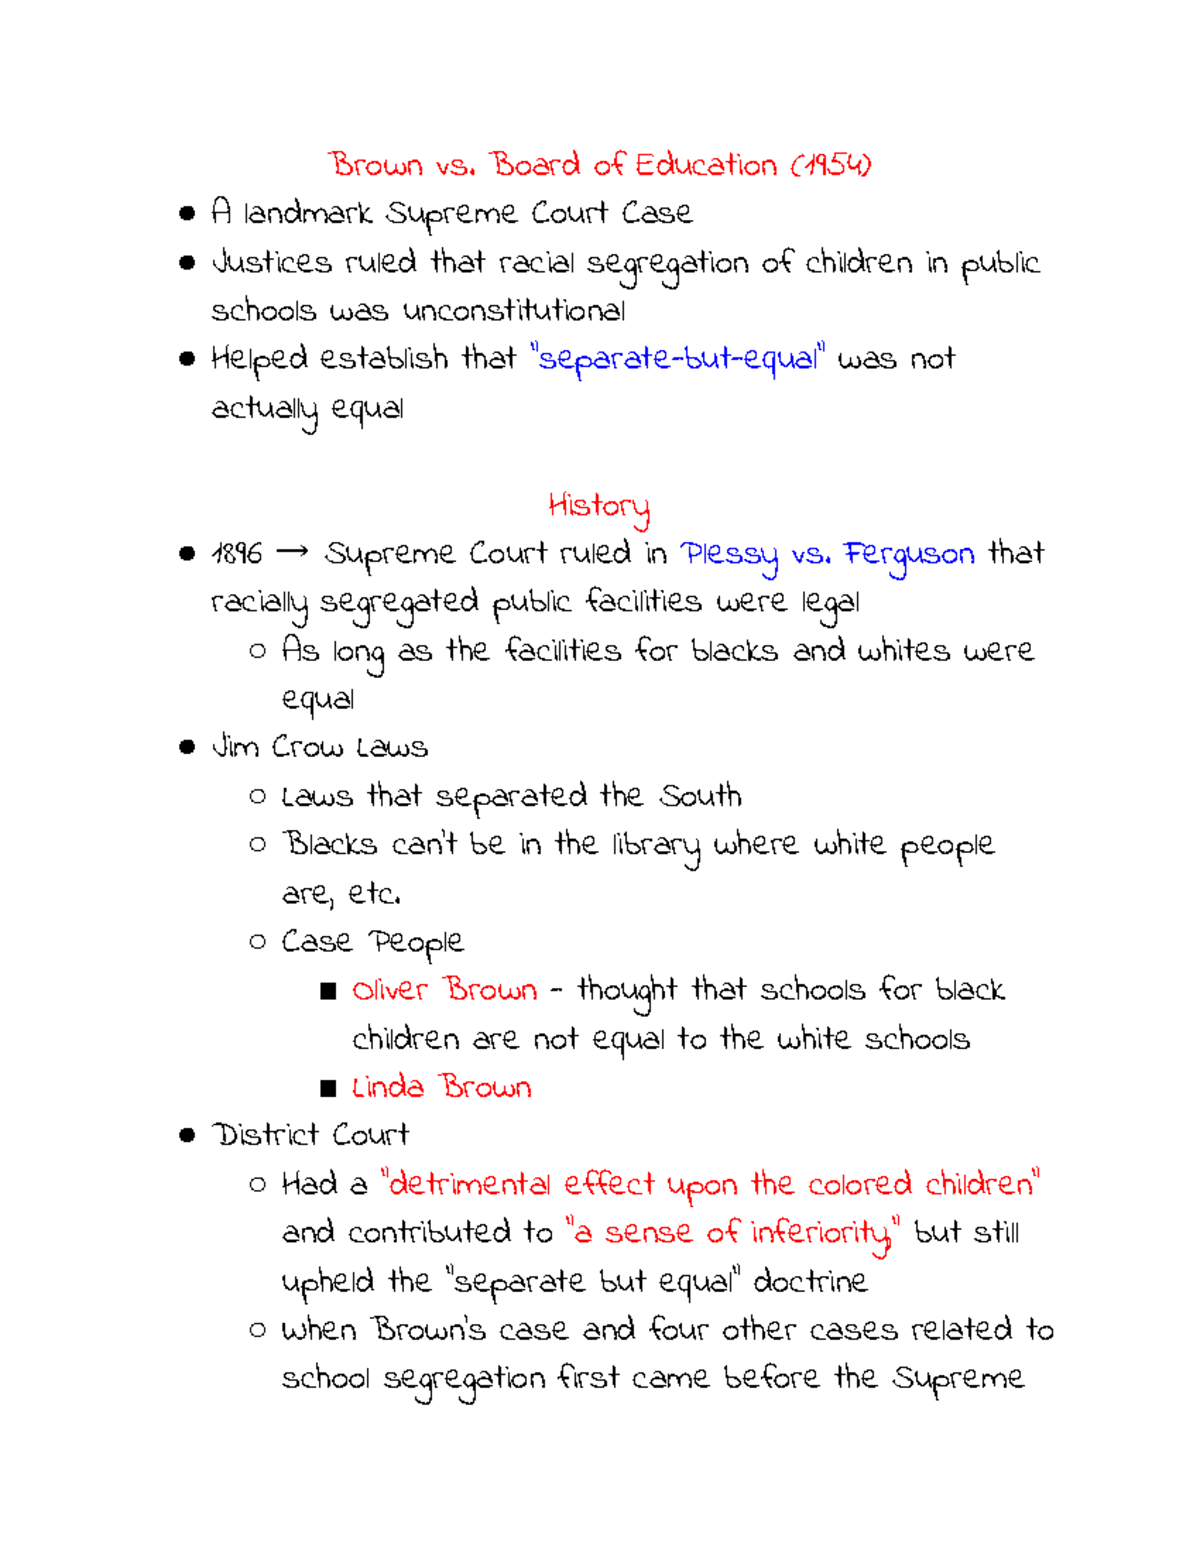 Brown vs. Board of Education (1954)
● A landmark Supreme Court Case
● Justices ruled that racial segregation of children in public
schools was unconstitutional
● Helped establish that "separate-but-equal" was not
actually equal
History
● 1896 → Supreme Court ruled in Plessy vs. Ferguson that
racially segregated public facilities were legal
○ As long as the facilities for blacks and whites were
equal
● Jim Crow Laws
○ Laws that separated the South
○ Blacks can't be in the library where white people
are, etc.
○ Case People
■ Oliver Brown - thought that schools for black
children are not equal to the white schools
■ Linda Brown
● District Court
○ Had a "detrimental effect upon the colored children"
and contributed to "a sense of inferiority," but still
upheld the "separate but equal" doctrine
○ When Brown's case and four other cases related to
school segregation first came before the Supreme